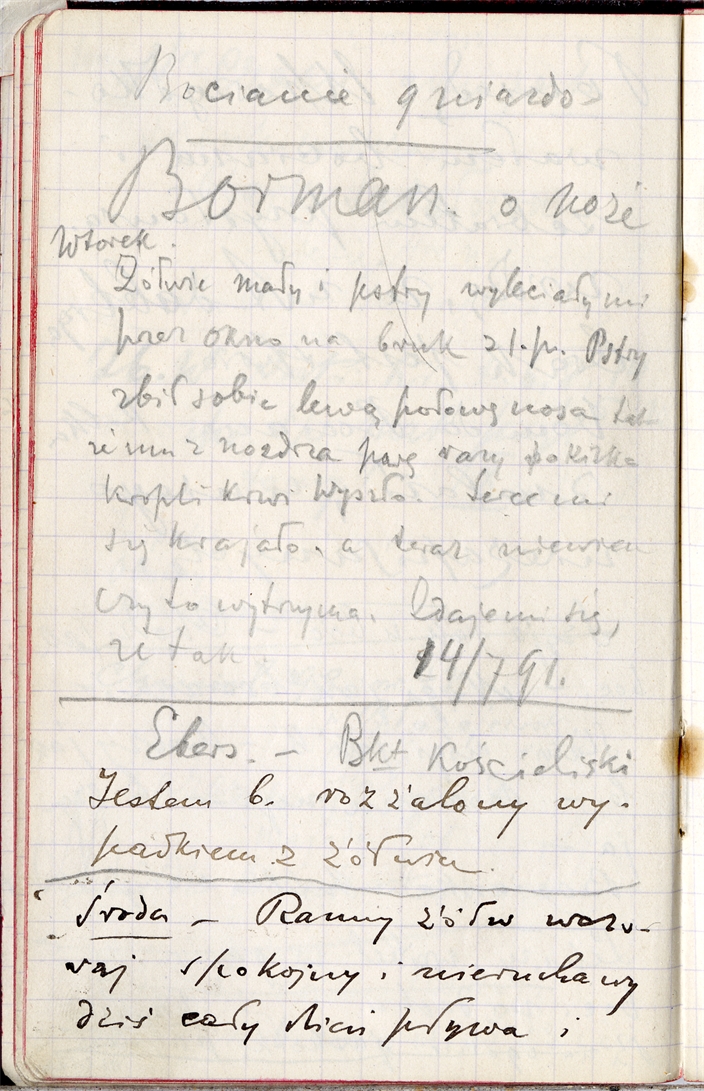 Bocianie gniazdo
Borman. o noże
Wtorek.
Żółwie mały i pstry wyleciały mi
przez okno na bruk z I. p. Pstry
zbił sobie lewą połowę nosa tak
że mu z nozdrza parę razy po kilka
kropli krwi wyszło. Serce mi
się krajało. a teraz niewiem
czy to wytrzyma. Zdaje mi się,
że tak.
14/7 91.
Ebers. – Bkt Kościelski
Jestem b. rozżalony wy-
padkiem z żółwiem.
Środa – Ranny żółw wczo-
raj spokojny i nieruchawy
dziś cały dzień pływa i